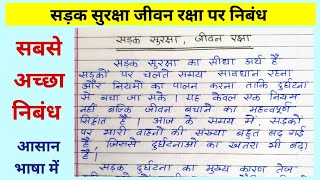 सड़क सुरक्षा जीवन रक्षा पर निबंध
सबसे
अच्छा
निबंध
आसान
भाषा में
सड़क सुरक्षा, जीवन रक्षा
सड़क सुरक्षा का सीधा कार्य है
सड़कों पर चलते समय सावधान रहना
और नियमों का पालन करना ताकि दुर्घटना
से बचा जा सके। यह केवल एक नियम
नहीं बल्कि जीवन बचाने का महत्वपूर्ण
सिद्धांत है। आज के समय में, सड़कों
पर भारी वाहनों की संख्या बहुत बढ़ गई
है, जिससे दुर्घटनाओं का खतरा भी बढ़ा
है।
सड़क दुर्घटना का मुख्य कारण तेज